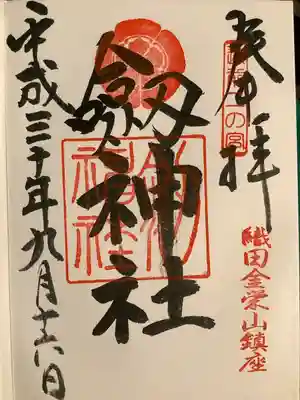 奉拝
二の宮
織田金栄山鎮座
劔神社
平成三十年九月十六日